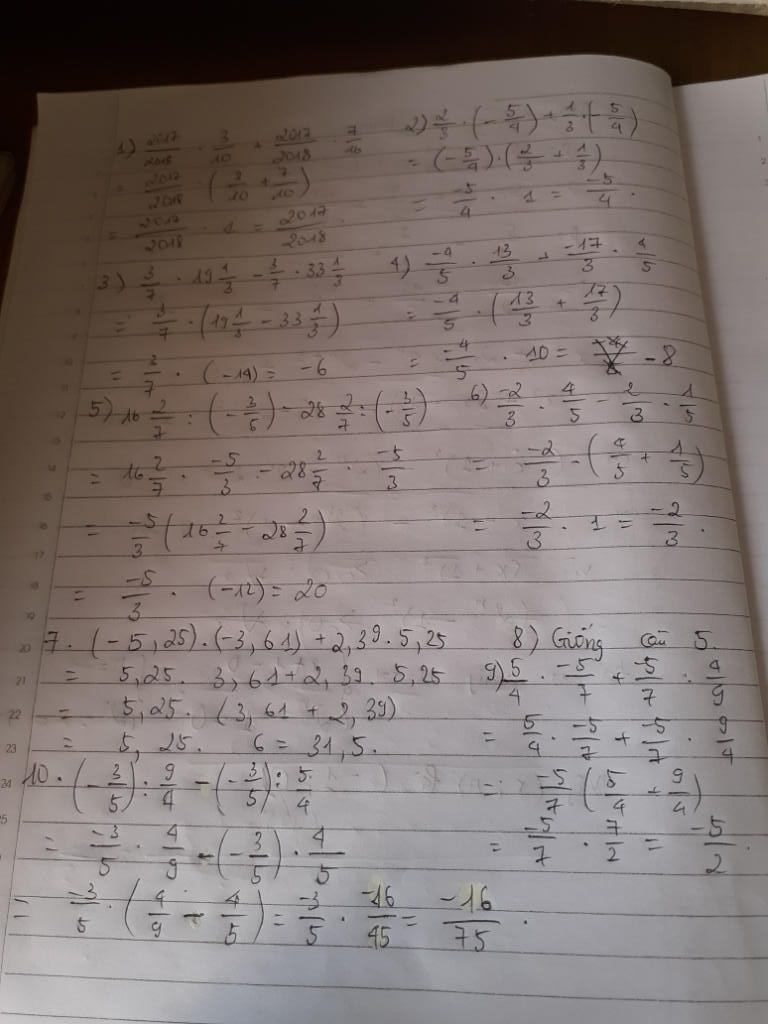 1) 2017/2018 · 3/10 + 2017/2018 · 7/10
= 2017/2018 · (3/10 + 7/10)
= 2017/2018 · 1 = 2017/2018.
2) 2/3 · (-5/4) + 1/3 · (-5/4)
= (-5/4) · (2/3 + 1/3)
= -5/4 · 1 = -5/4.
3) 3/7 · 19 1/3 - 3/7 · 33 1/3
= 3/7 · (19 1/3 - 33 1/3)
= 3/7 · (-14) = -6
4) -4/5 · 13/3 + -17/3 · 4/5
= -4/5 · (13/3 + 17/3)
= -4/5 · 10 = -8
5) 16 2/7 : (-3/5) - 28 2/7 : (-3/5)
= 16 2/7 · -5/3 - 28 2/7 · -5/3
= -5/3 (16 2/7 - 28 2/7)
= -5/3 · (-12) = 20
6) -2/3 · 4/5 - 2/3 · 1/5
= -2/3 - (4/5 + 1/5)
= -2/3 · 1 = -2/3.
7. (-5,25).(-3,61) + 2,39.5,25
= 5,25. 3,61 + 2,39. 5,25
= 5,25. (3,61 + 2,39)
= 5,25. 6 = 31,5.
8) Giống câu 5.
9) 5/4 · -5/7 + -5/7 : 4/9
= 5/4 · -5/7 + -5/7 · 9/4
= -5/7 (5/4 + 9/4)
= -5/7 · 7/2 = -5/2.
10. (-3/5) : 9/4 - (-3/5) : 5/4
= -3/5 · 4/9 - (-3/5) · 4/5
= -3/5 · (4/9 - 4/5) = -3/5 · -16/45 = -16/75.